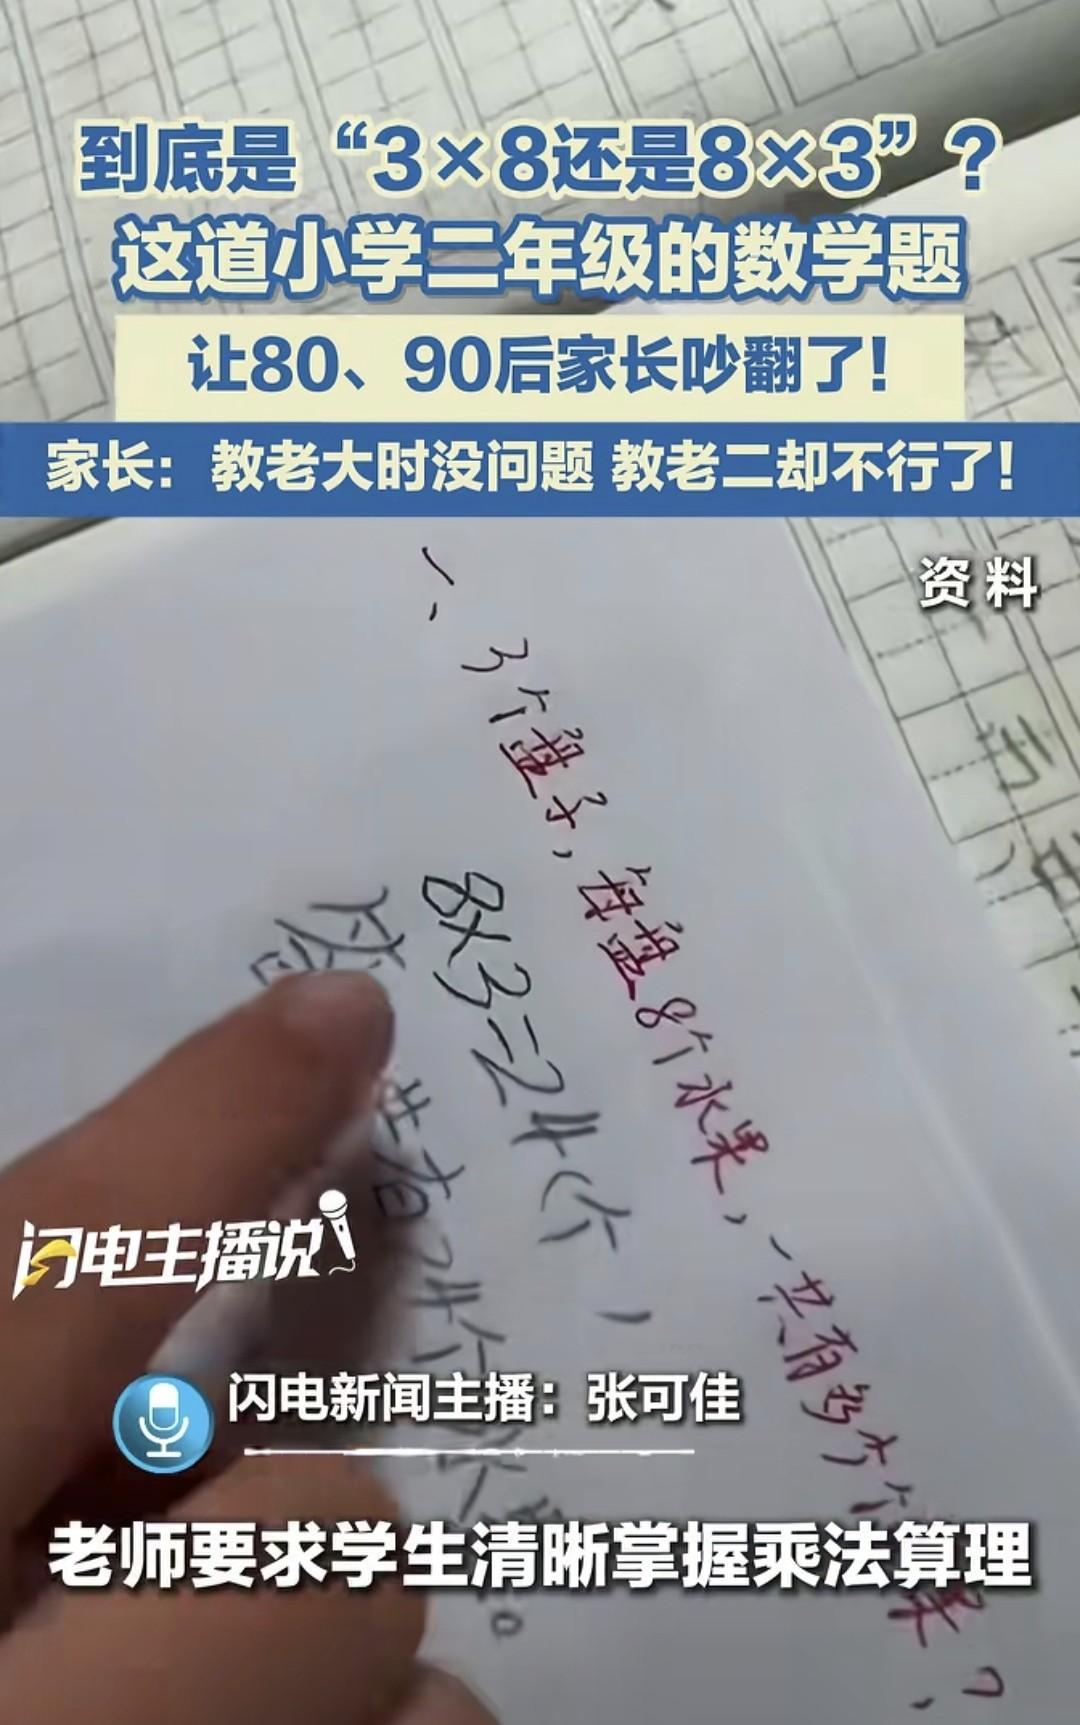 到底是“3×8还是8×3”？
这道小学二年级的数学题
让80、90后家长吵翻了！
家长：教老大时没问题 教老二却不行了！
资料
一、3个盘子，每盘8个水果，一共有多少个水果？
8×3=24(个)
答 共有24个水果。
闪电主播说
闪电新闻主播：张可佳
老师要求学生清晰掌握乘法算理